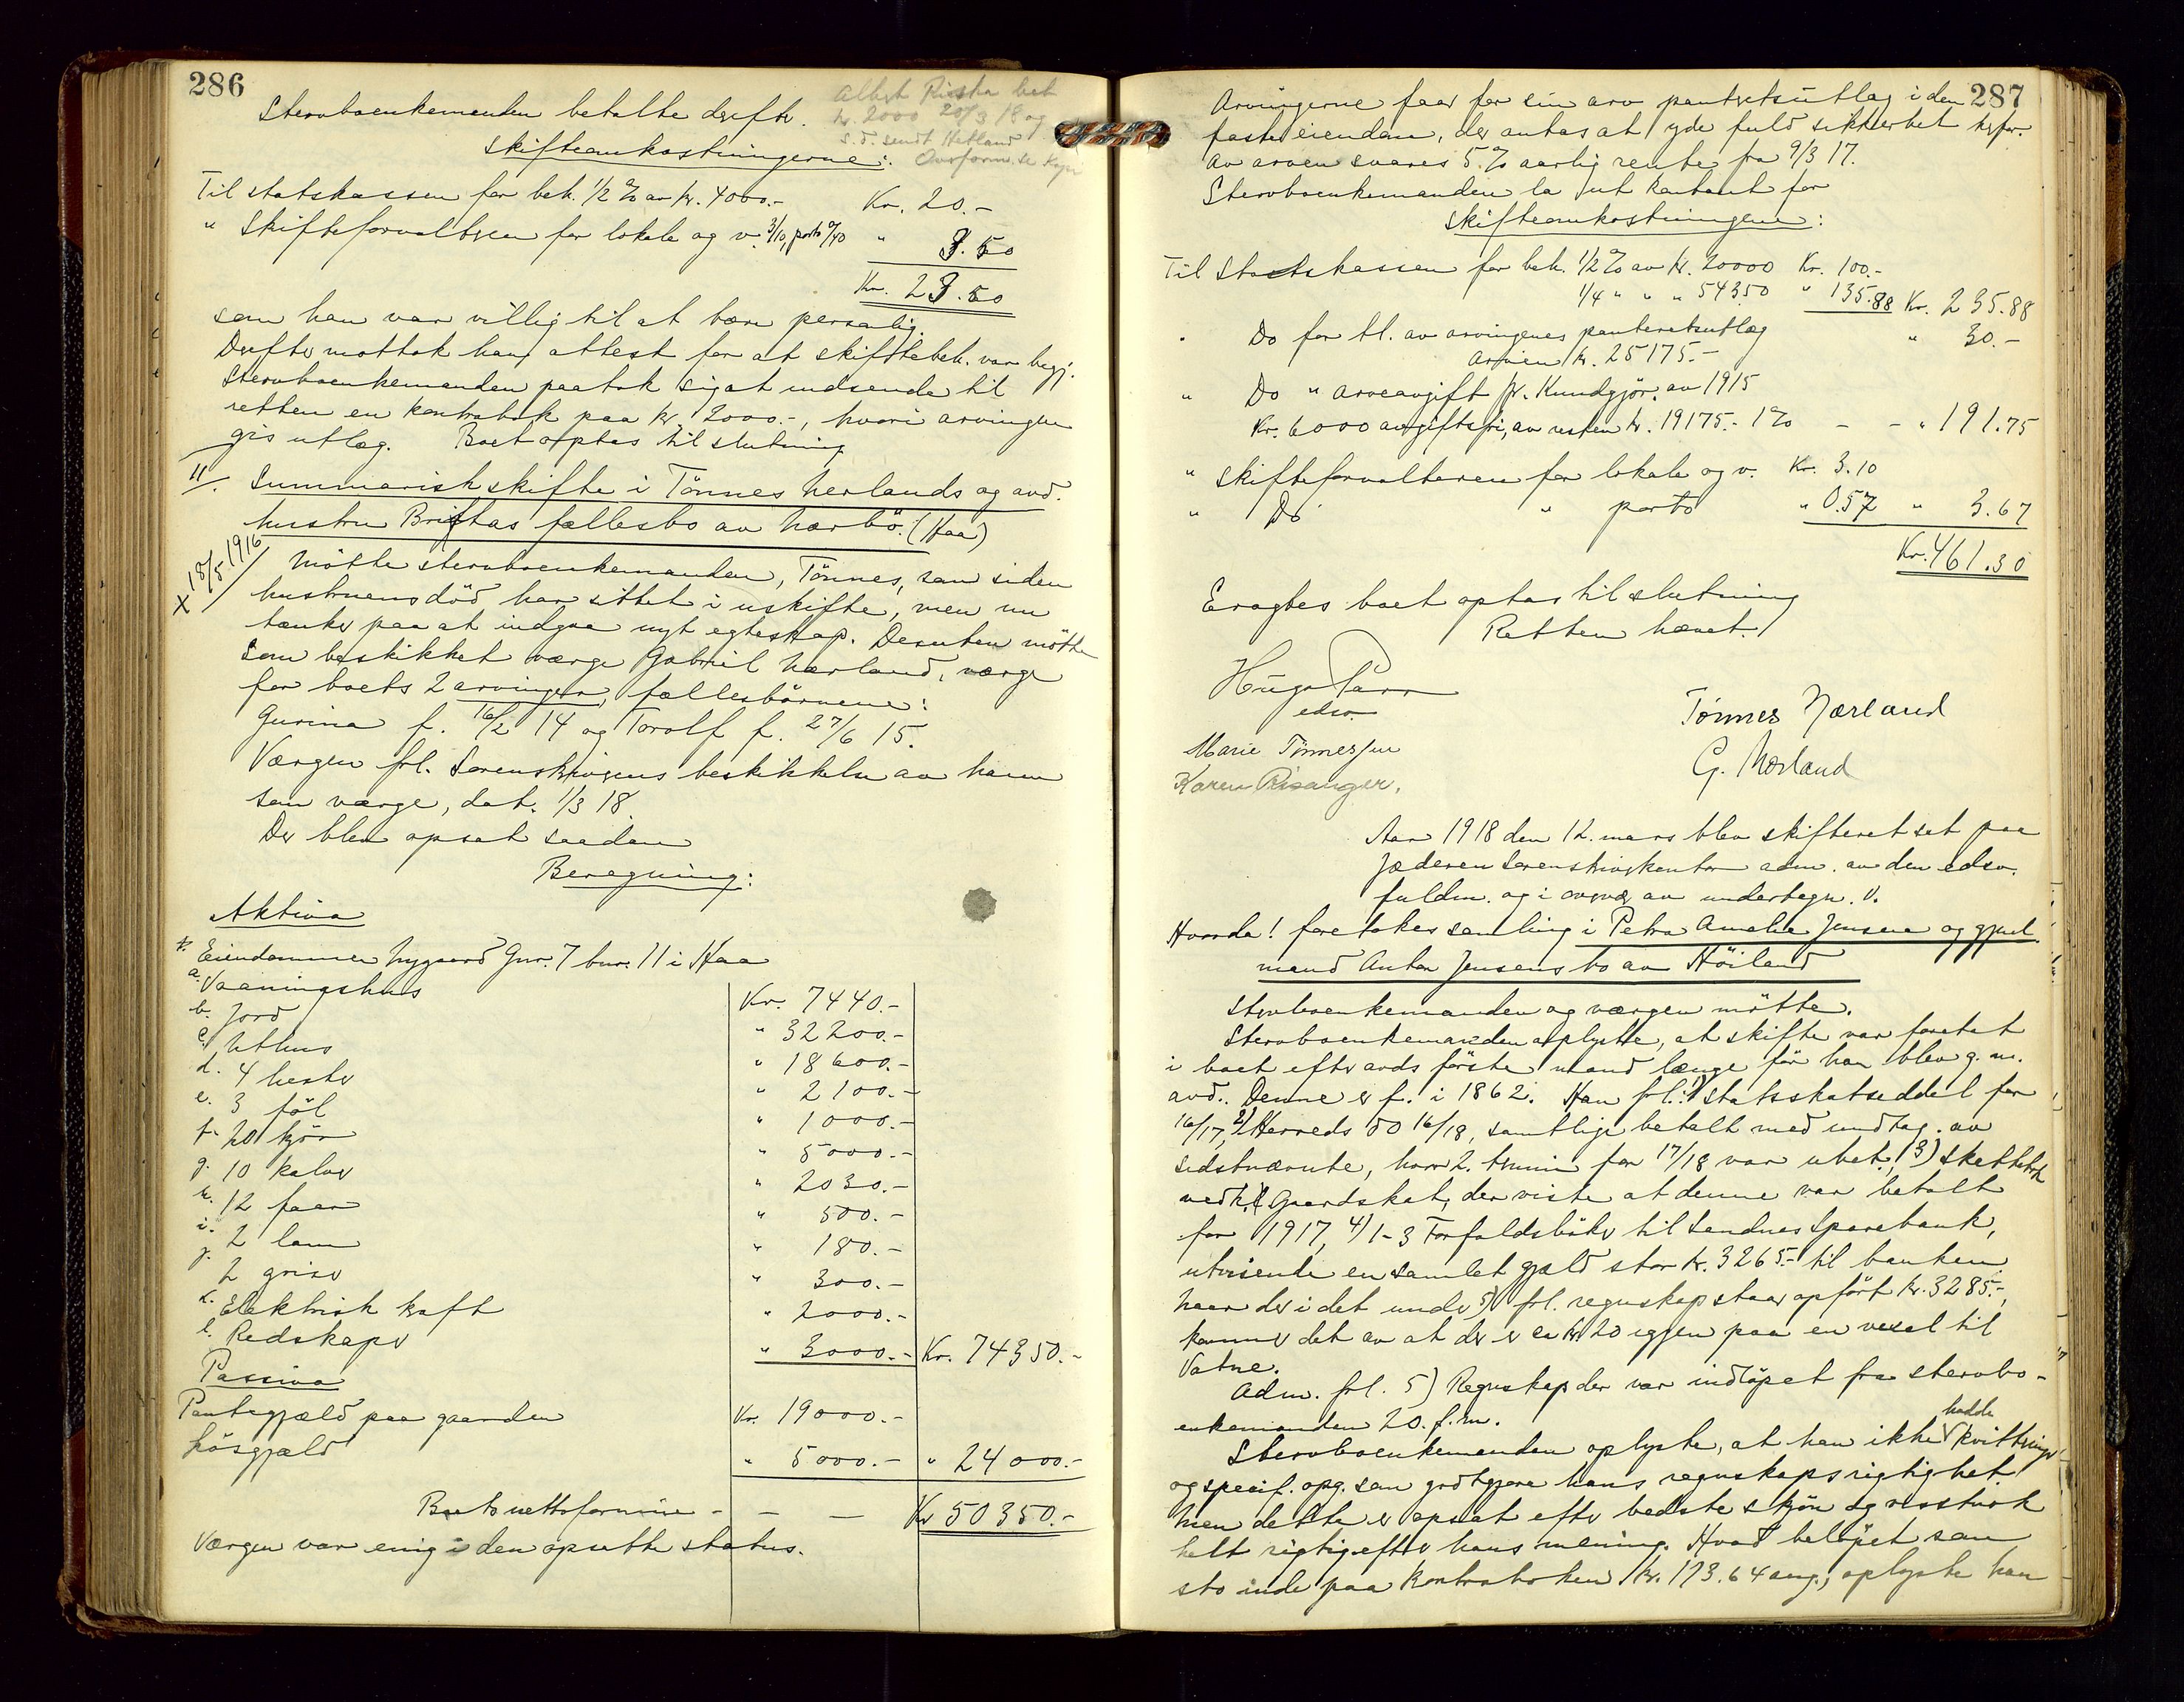 286
Albert Rista bet
kr. 2000 20/3 18 og
s.d. sendt Hetland
Overform. se Kopi
Stervboenkemanden betalte derefter.
Skifteomkostningerne:
Til statskassen for beh. 1/2 % av kr. 4000.- Kr. 20.-
" Skifteforvalteren for lokale og v. 3/10, porto 0/40 " 3.50
Kr. 23.50
som han var villig til at bære personlig.
Derefter mottok han attest for at skiftebeh. var begj.
Stervboenkemanden paatok sig at indsende til
retten en kontrabok paa kr. 2000.-, hvori arvingen
gis utlæg. Boet optas til slutning
11/. Summarisk skifte i Tönnes Nerlands og avd.
hustru Britas fællesbo av Nærbö. (Haa)
x 18/5 1916
Mötte stervboenkemanden, Tönnes, som siden
hustruens död har sittet i uskifte, men nu
tænker paa at indgaa nyt egteskap. Desuten mötte
som beskikket værge Gabriel Nærland, værge
for boets 2 arvinger, fællesbörnene:
Gurina f. 16/2 14 og Torolf f. 27/6 15.
Værgen frl. Sorenskrivrens beskikkelse av ham
som værge, dat. 1/3 18.
Der blev opsat saadan
Beregning:
Aktiva
Eiendommen Nygaard Gnr. 7 bnr. 11 i Haa
a. Vaaningshus Kr. 7440.-
b. Jord " 32200.-
c. Uthus " 18600.-
d. 4 hester " 2100.-
e. 3 föl " 1000.-
f. 20 kjör " 5000.-
g. 10 kalver " 2030.-
h. 12 faar " 500.-
i. 2 lam " 180.-
j. 2 griser " 300.-
k. Elektrisk kraft " 2000.-
l. Redskaper " 3000.- Kr. 74350.-
Passiva
Pantegjæld paa gaarden Kr. 19000.-
Lösgjæld " 5000.- " 24000.-
Boets nettoformue - - - Kr 50350.-
Værgen var enig i den opsatte status.
287
Arvingerne faar for sin arv pantretsutlæg i den
faste eiendom, der antas at yde fuld sikkerhet herfor.
Av arven svares 5 % aarlig rente fra 9/3 17.
Stervboenkemanden la ut kontant for
Skifteomkostningene:
Til Statskassen for beh. 1/2 % av kr. 20000 Kr. 100.-
1/4 " " " 54350 " 135.88 Kr. 235.88
" Do for tl. av arvingenes panteretsutlæg " 30.-
Arvien kr. 25175.-
" Do " arveavgift fr. Kundgjör. av 1915
Kr. 6000 avgiftsfri, av resten kr. 19175.- 1 % - - " 191.75
" Skifteforvalteren for lokale og v. Kr. 3.10
" Do " porto " 0.57 " 3.67
Kr. 461.30
Eragtes boet optas til slutning
Retten hævet.
Hugo Parr
edsv.
Tönnes Nærland
Marie Tönnessen
G. Nærland
Karen Risanger.
Aar 1918 den 12. mars blev skifteret sat paa
Jæderen Sorenskriverkontor adm. av den edsv.
fuldm. og i overvær av undertegn. v.
Hvorda! foretokes samling i Petra Amelie Jensen og gjenl.
mand Anton Jensens bo av Höiland
Stervboenkemanden og værgen mötte.
Stervboenkemanden oplyste, at skifte var foretat
i boet efter avds förste mand længe för han blev g. m.
avd. Denne er f. i 1862. Han frl.: 1) Statsskatseddel for
16/17, 2) Herreds do 16/18, samtlige betalt med undtag. av
sidstnævnte, hvor 2. termin for 17/18 var ubet., 3) Skattebok
vedk. Gaardskat, der viste at denne var betalt
for 1917, 4) 1-3 Forfaldsböker til Sandnes Sparebank,
utvisende en samlet gjæld stor kr. 3265.- til banken
naar der i det under 5) frl. regnskap staar opfört kr. 3285.-,
kommer det av at der er ca kr 20 igjen paa en vexel til
Vatne.
Adm. frl. 5) Regnskap der var indlöpet fra stervbo-
enkemanden 20. f.m.
Stervboenkemanden oplyste, at han ikke hadde kvitteringer
og specif. opg. som godtgjöre hans regnskaps rigtighet.
Men dette er opsat efter bedste skjön og
helt rigtig efter hans mening. Hvad belöpet som
sto inde paa kontraboken kr. 173.64 ang., oplyste han